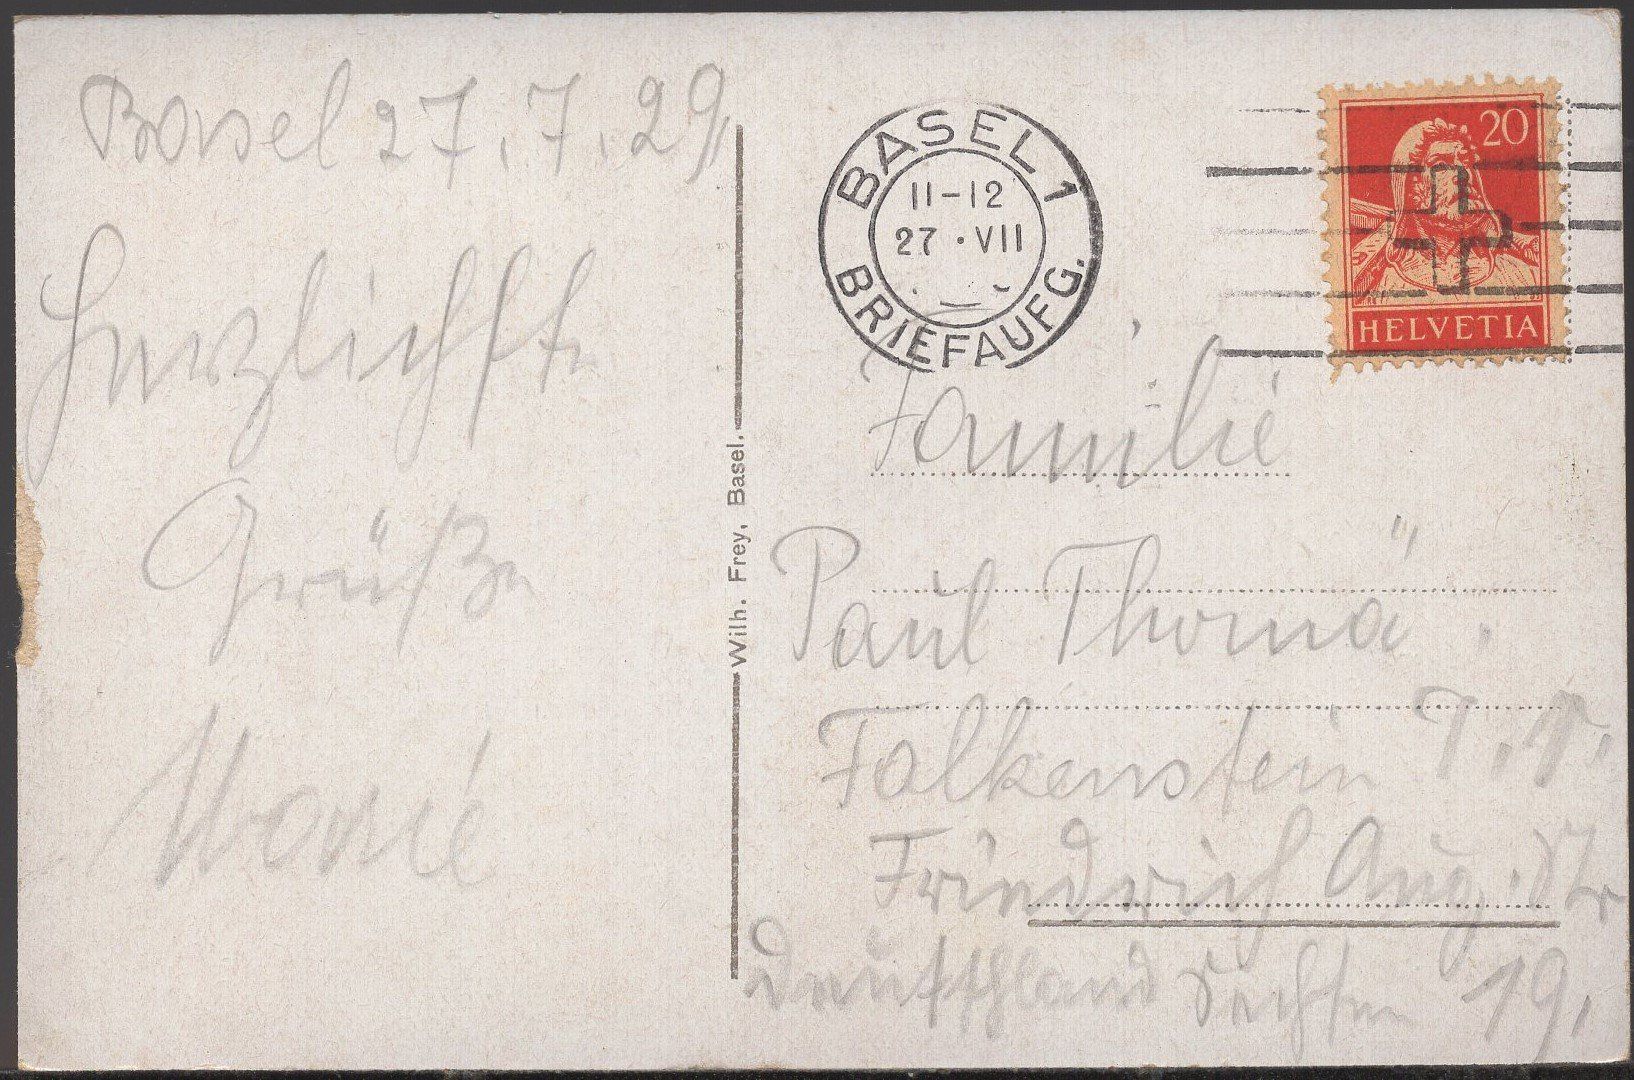 Basel 27.7.29
Herzlichste
Grüße
Marie
Wilh. Frey, Basel.
BASEL 1
11-12
27·VII
BRIEFAUFG.
20
HELVETIA
Familie
Paul Thomä.
Falkenstein
Friedrich Aug. Str
Deutschland Sachsen 19.